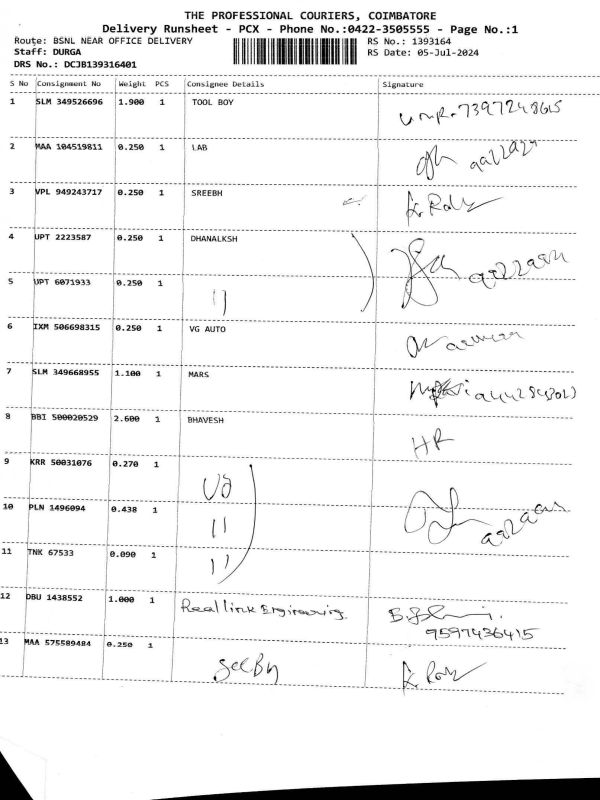 THE PROFESSIONAL COURIERS, COIMBATORE
Delivery Runsheet - PCX - Phone No.:0422-3505555 - Page No.:1
Route: BSNL NEAR OFFICE DELIVERY RS No.: 1393164
Staff: DURGA RS Date: 05-Jul-2024
DRS No.: DCJB139316401
S No Consignment No Weight PCS Consignee Details Signature
1 SLM 349526696 1.900 1 TOOL BOY 7397248615
2 MAA 104519811 0.250 1 LAB
3 VPL 949243717 0.250 1 SREEBH
4 UPT 2223587 0.250 1 DHANALKSH
5 UPT 6071933 0.250 1 11
6 IXM 506698315 0.250 1 VG AUTO
7 SLM 349668955 1.100 1 MARS
8 BBI 500020529 2.600 1 BHAVESH HR
9 KRR 50031076 0.270 1 VG
10 PLN 1496094 0.438 1 11
11 TNK 67533 0.090 1 11
12 DBU 1438552 1.000 1 Real link Engineering
9597436415
13 MAA 575589484 0.250 1